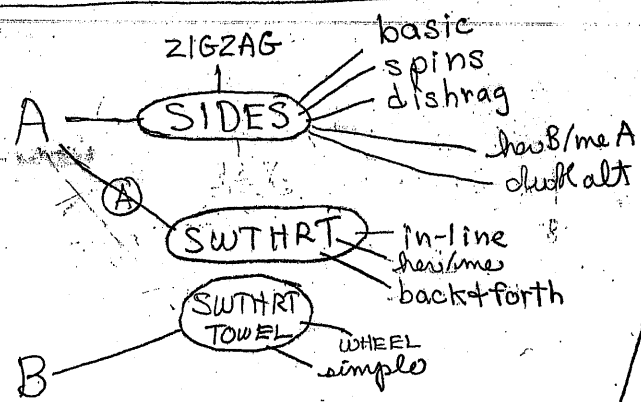 ZIGZAG
basic
spins
dishrag
A
SIDES
her B/me A
dudk alt
A
SWTHRT
in-line
her/me
back+forth
SWTHRT
TOWEL
WHEEL
simple
B